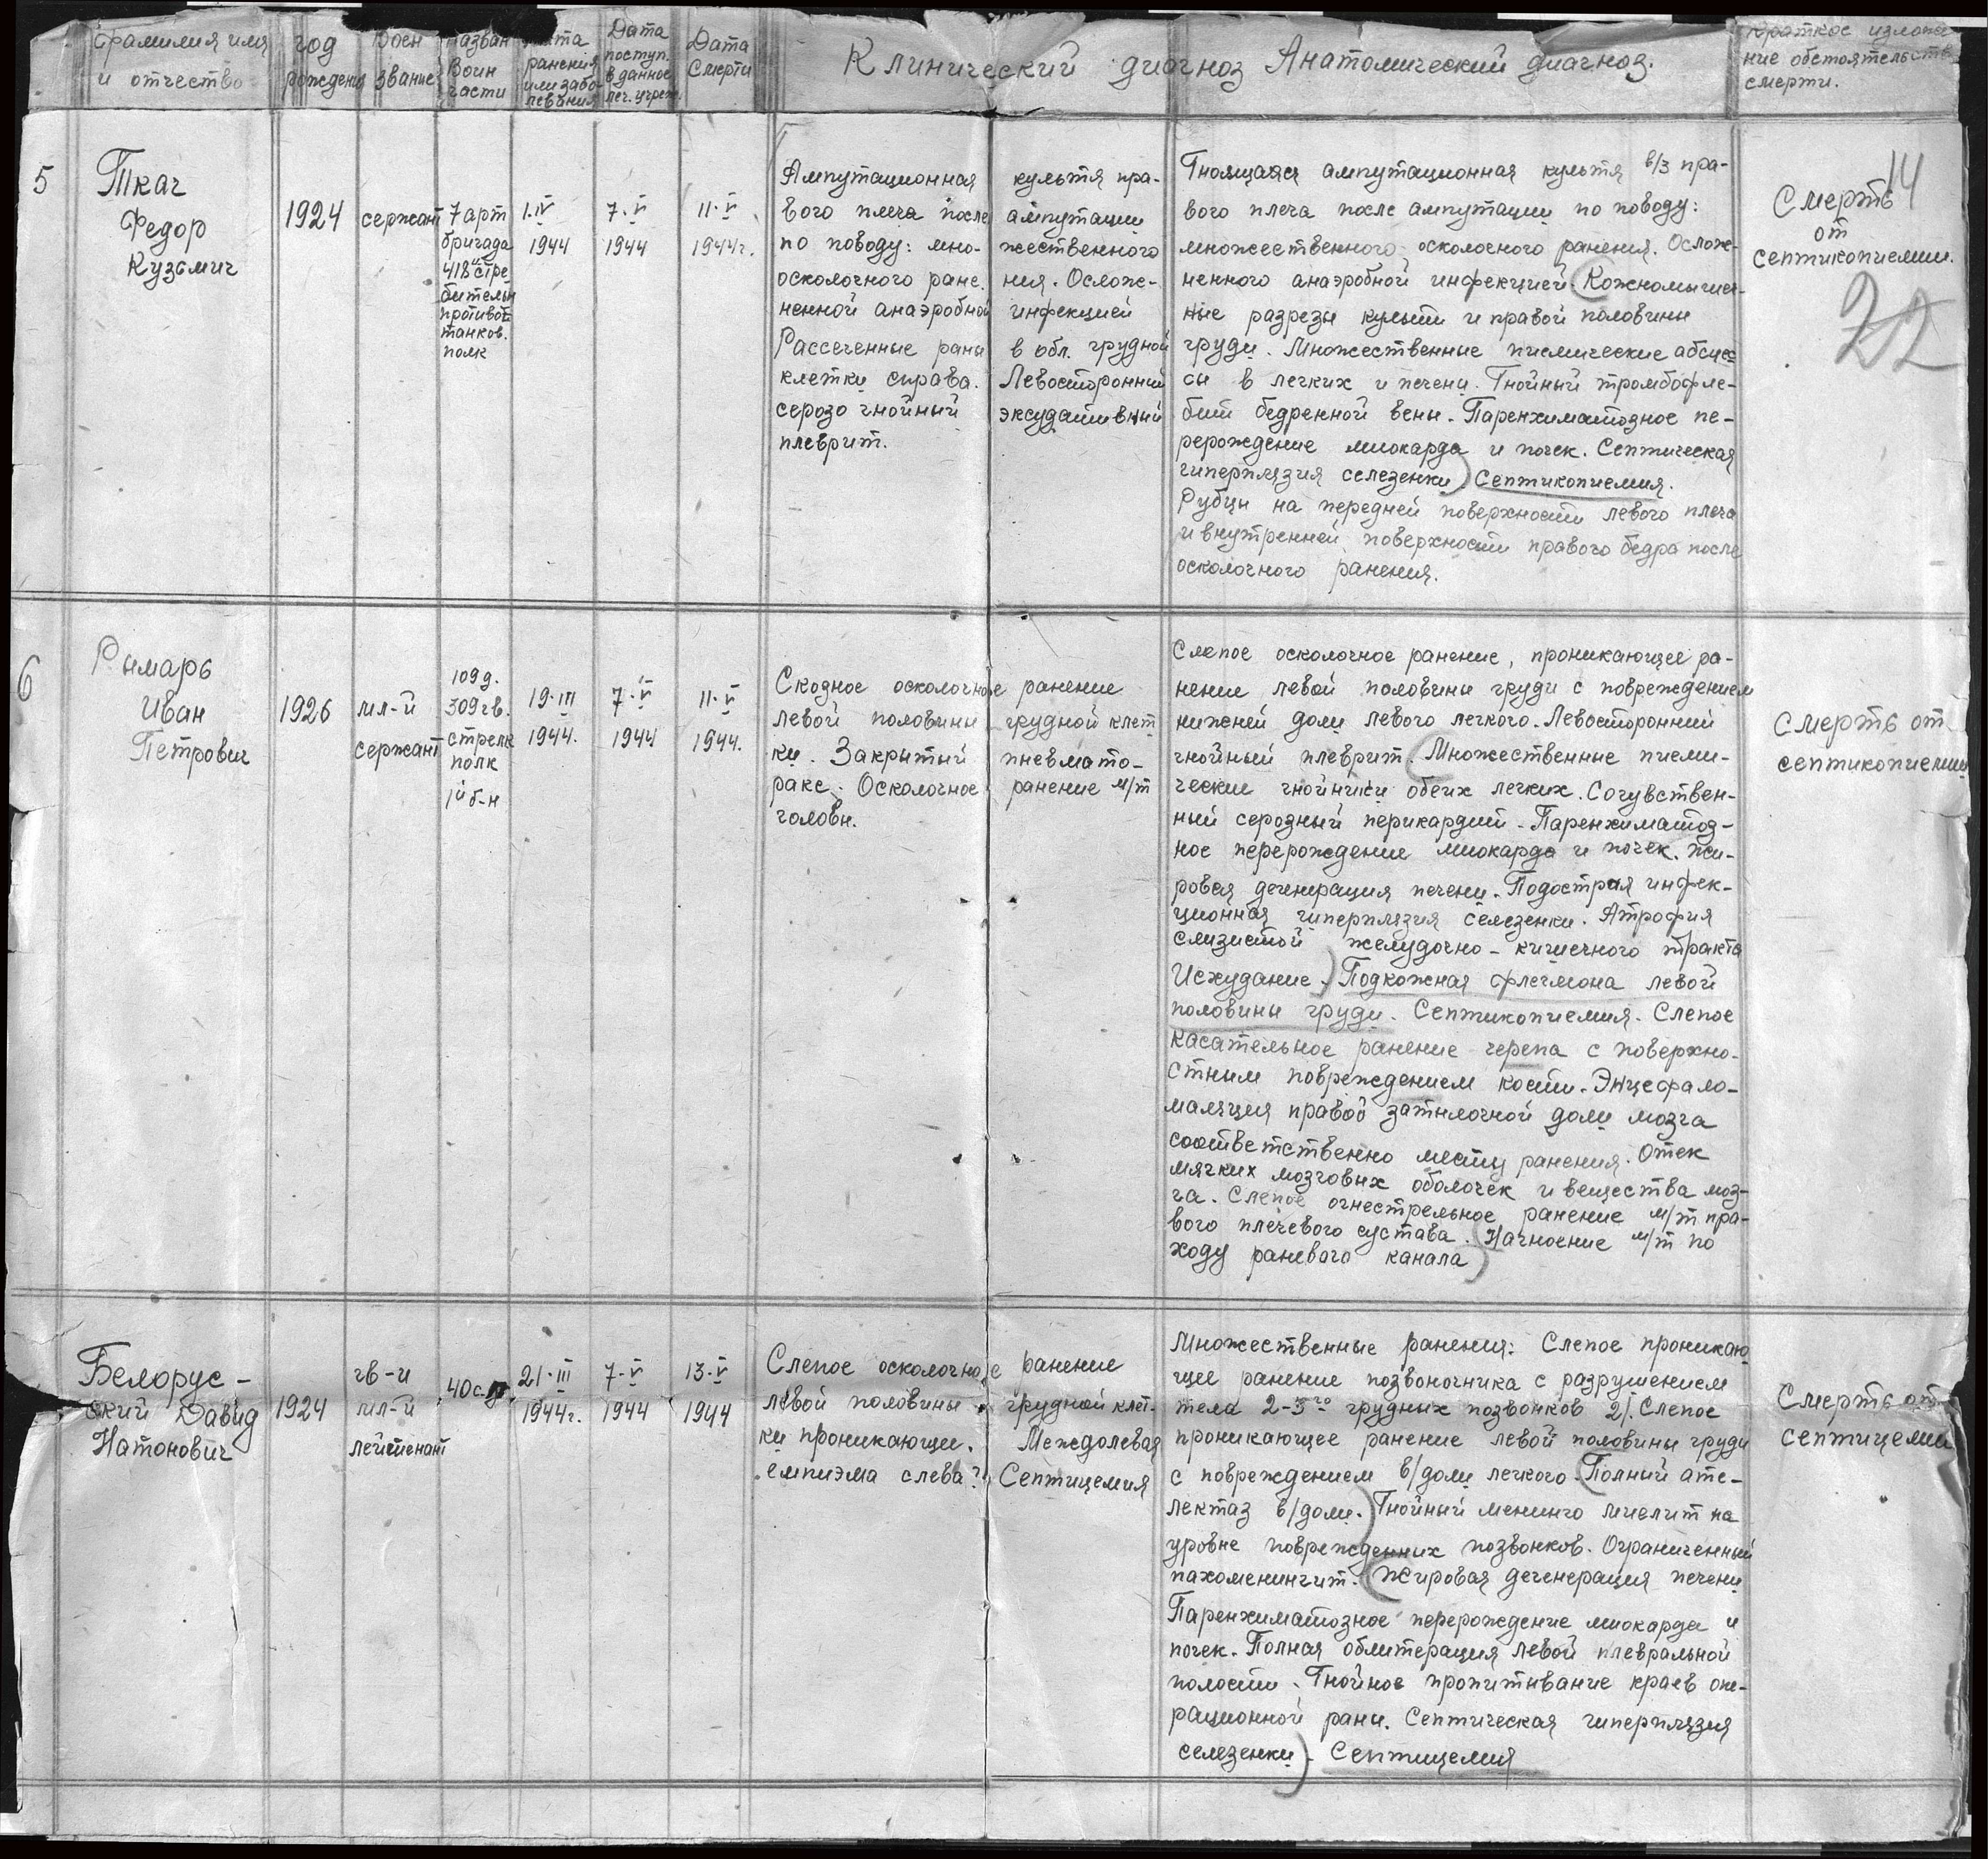 Фамилия имя и отчество
год рождения
Воен звание
Назван Воин части
Дата ранения или заболевания
Дата поступ. в данное леч. учреж.
Дата Смерти
Клинический диагноз
Анатомический диагноз.
Краткое изложение обстоятельств смерти.
14
22
5
Ткач
Федор
Кузьмич
1924
сержант
7 арт
бригада
418 истре
бительн
противот
танков.
полк
1.IV
1944
7.V
1944
11.V
1944г.
Ампутационная культя пра-
вого плеча после ампутации
по поводу: мно- жественного
осколочного ране. ния. Ослож-
ненной анаэробной инфекцией
Рассеченные раны в обл. грудной
клетки справа. Левосторонний
серозо гнойный эксудативный
плеврит.
Гноящаяся ампутационная культя в/3 пра-
вого плеча после ампутации по поводу:
множественного осколочного ранения. Ослож-
ненного анаэробной инфекцией. (Кожномышеч-
ные разрезы культи и правой половины
груди. Множественные пиемические абсцес
сы в легких и печени. Гнойный тромбофле-
бит бедренной вены. Паренхиматозное пе-
рерождение миокарда и почек. Септическая
гиперплязия селезенки) Септикопиемия.
Рубцы на передней поверхности левого плеча
и внутренней поверхности правого бедра после
осколочного ранения.
Смерть
от
септикопиемии.
6
Рымарь
Иван
Петрович
1926
мл-й
сержант
109 д.
309 гв.
стрелк
полк
1й б-н
19.III
1944.
7.V
1944
11.V
1944.
Скодное осколочное ранение
левой половины грудной клет
ки. Закрытый пневмато-
ракс. Осколочное ранение м/т
головы.
Слепое осколочное ранение, проникающее ра-
нение левой половины груди с повреждением
нижней доли левого легкого. Левосторонний
гнойный плеврит. (Множественные пиеми-
ческие гнойники обеих легких. Сочувствен-
ный серозный перикардит. Паренхиматоз-
ное перерождение миокарда и почек. Жи-
ровая дегенерация печени. Подострая инфек-
ционная гиперплязия селезенки. Атрофия
слизистой желудочно-кишечного тракта
Исхудание.) Подкожная флегмона левой
половины груди. Септикопиемия. Слепое
касательное ранение черепа с поверхно-
стным повреждением кости. Энцефало-
маляция правой затылочной доли мозга
соответственно месту ранения. Отек
мягких мозговых оболочек и вещества моз-
га. Слепое огнестрельное ранение м/т пра-
вого плечевого сустава. (Нагноение м/т по
ходу раневого канала)
Смерть от
септикопиемии
Белорус-
ский Давид
Натонович
1924
гв-и
мл-й
лейтенант
40 с.п.
21.III
1944г.
7.V
1944
13.V
1944
Слепое осколочное ранение
левой половины грудной клет-
ки проникающи. Междолевая
емпиэма слева? Септицемия
Множественные ранения: Слепое проникаю
щее ранение позвоночника с разрушением
тела 2-3го грудных позвонков 2/. Слепое
проникающее ранение левой половины груди
с повреждением в/доли легкого. (Полный ате-
лектаз в/доли.) Гнойный менинго миелит на
уровне поврежденных позвонков. Ограниченный
пахоменингит. (Жировая дегенерация печени
Паренхиматозное перерождение миокарда и
почек. Полная облитерация левой плевральной
полости. Гнойное пропитывание краев опе-
рационной раны. Септическая гиперплязия
селезенки). Септицемия
Смерть от
септицемии